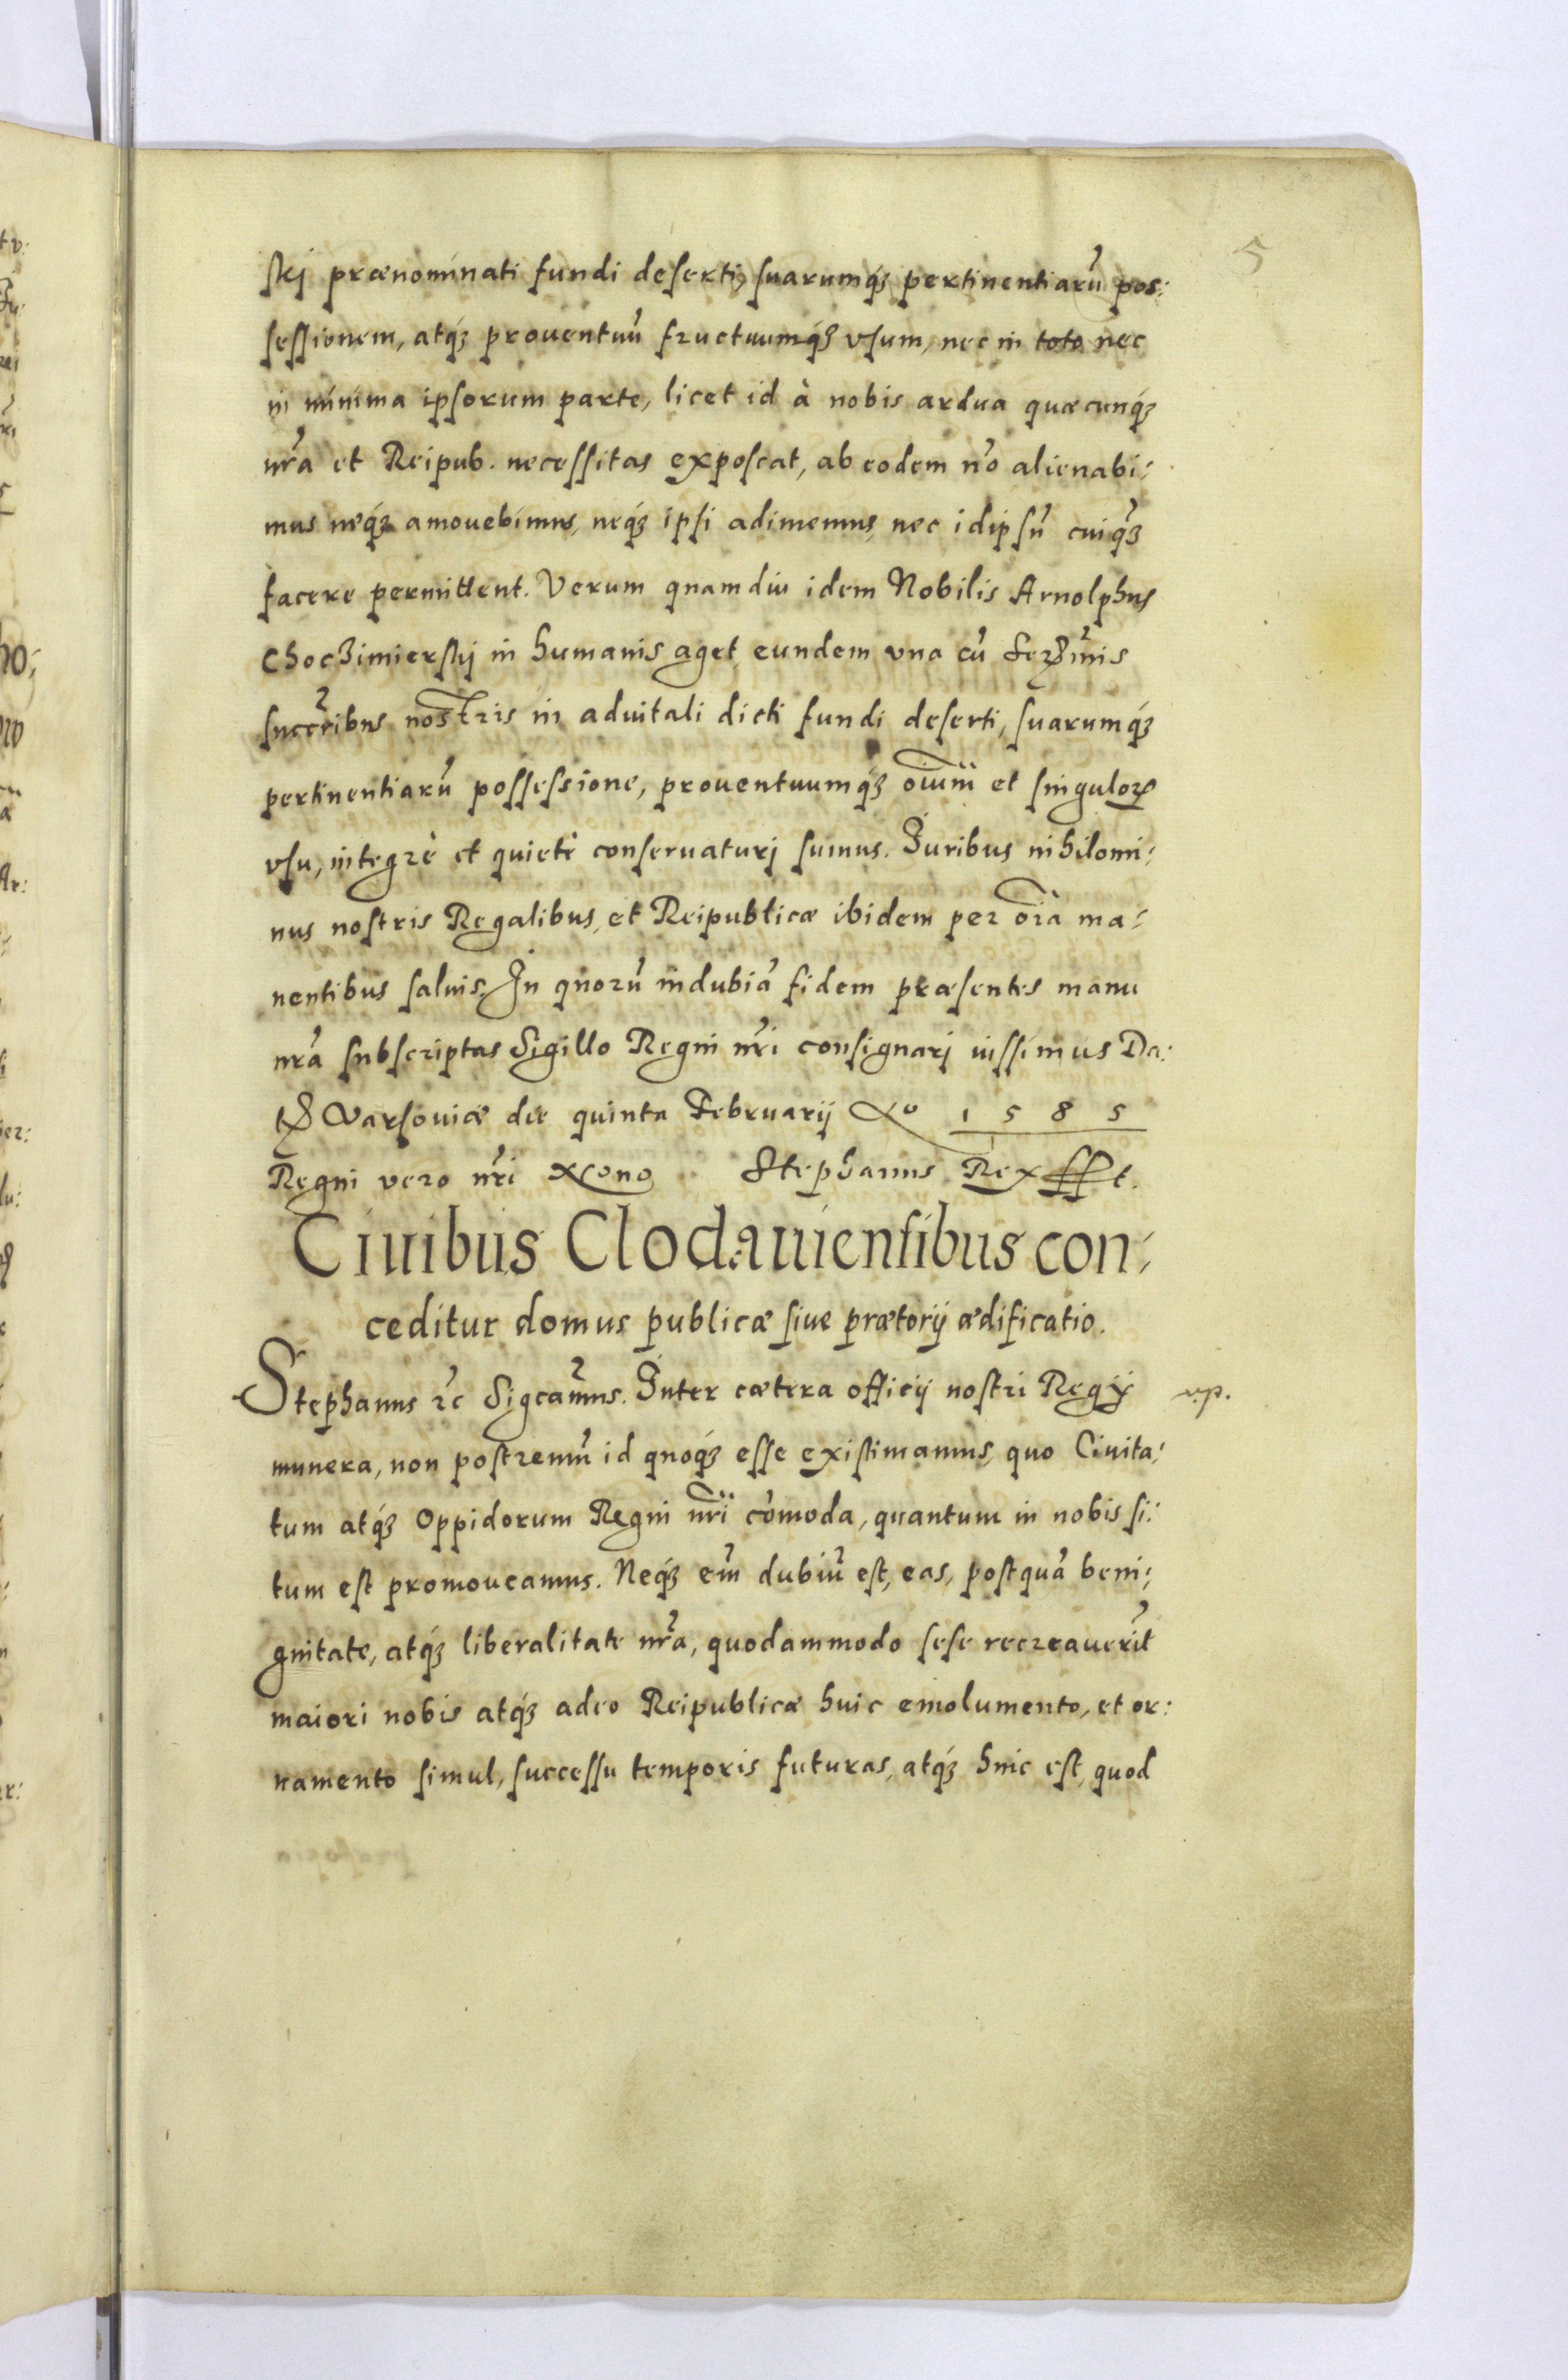 5
skj prænominati fundi deserti, suarumq́ꝫ pertinentiarũ pos:
sessionem, atq́ꝫ prouentuũ fructuumq́ꝫ vsum, nec in toto nec
in minima ipsorum parte, licet id à nobis ardua quæcunq́ꝫ
nr̃a et Reipub. necessitas exposcat, ab eodem nõ alienabi:
mus neq́ꝫ amouebimus, neq́ꝫ ipsi adimemus, nec idipsũ cuiq́ꝫ
facere permittent. Verum quamdiu idem Nobilis Arnolphus
Choczimierskj in humanis aget, eundem vna cũ Serẽmis
succẽribus nostris in aduitali dicti fundi deserti, suarumq́ꝫ
pertinentiarũ possessione, prouentuumq́ꝫ oĩum et singuloꝝ
vsu, integrè et quietè conseruaturj sumus. Iuribus nihilomi:
nus nostris Regalibus, et Reipublicæ ibidem per oĩa ma:
nentibus saluis. In quorũ indubiã fidem præsentes manu
nr̃a subscriptas Sigillo Regni nr̃i consignarj iussimus Da:
tꝭ Varsouiæ die quinta Februarij Aº 1585
Regni vero nr̃i xºnº Stephanus Rex sspt.
Ciuibus Clodauiensibus con:
ceditur domus publicæ siue prætorij ædificatio.
Stephanus ꝛc Sigcamus. Inter cætera officij nostri Regij up.
munera, non postremũ id quoq́ꝫ esse existimamus, quo Ciuita:
tum atq́ꝫ Oppidorum Regni nr̃i cõmoda, quantum in nobis si:
tum est promoueamus. Neq́ꝫ em̃ dubiũ est, eas, postquã beni:
gnitate, atq́ꝫ liberalitate nr̃a, quodammodo sese recreauerĩt
maiori nobis atq́ꝫ adeo Reipublicæ huic emolumento, et or:
namento simul, successu temporis futuras, atq́ꝫ hinc est, quod